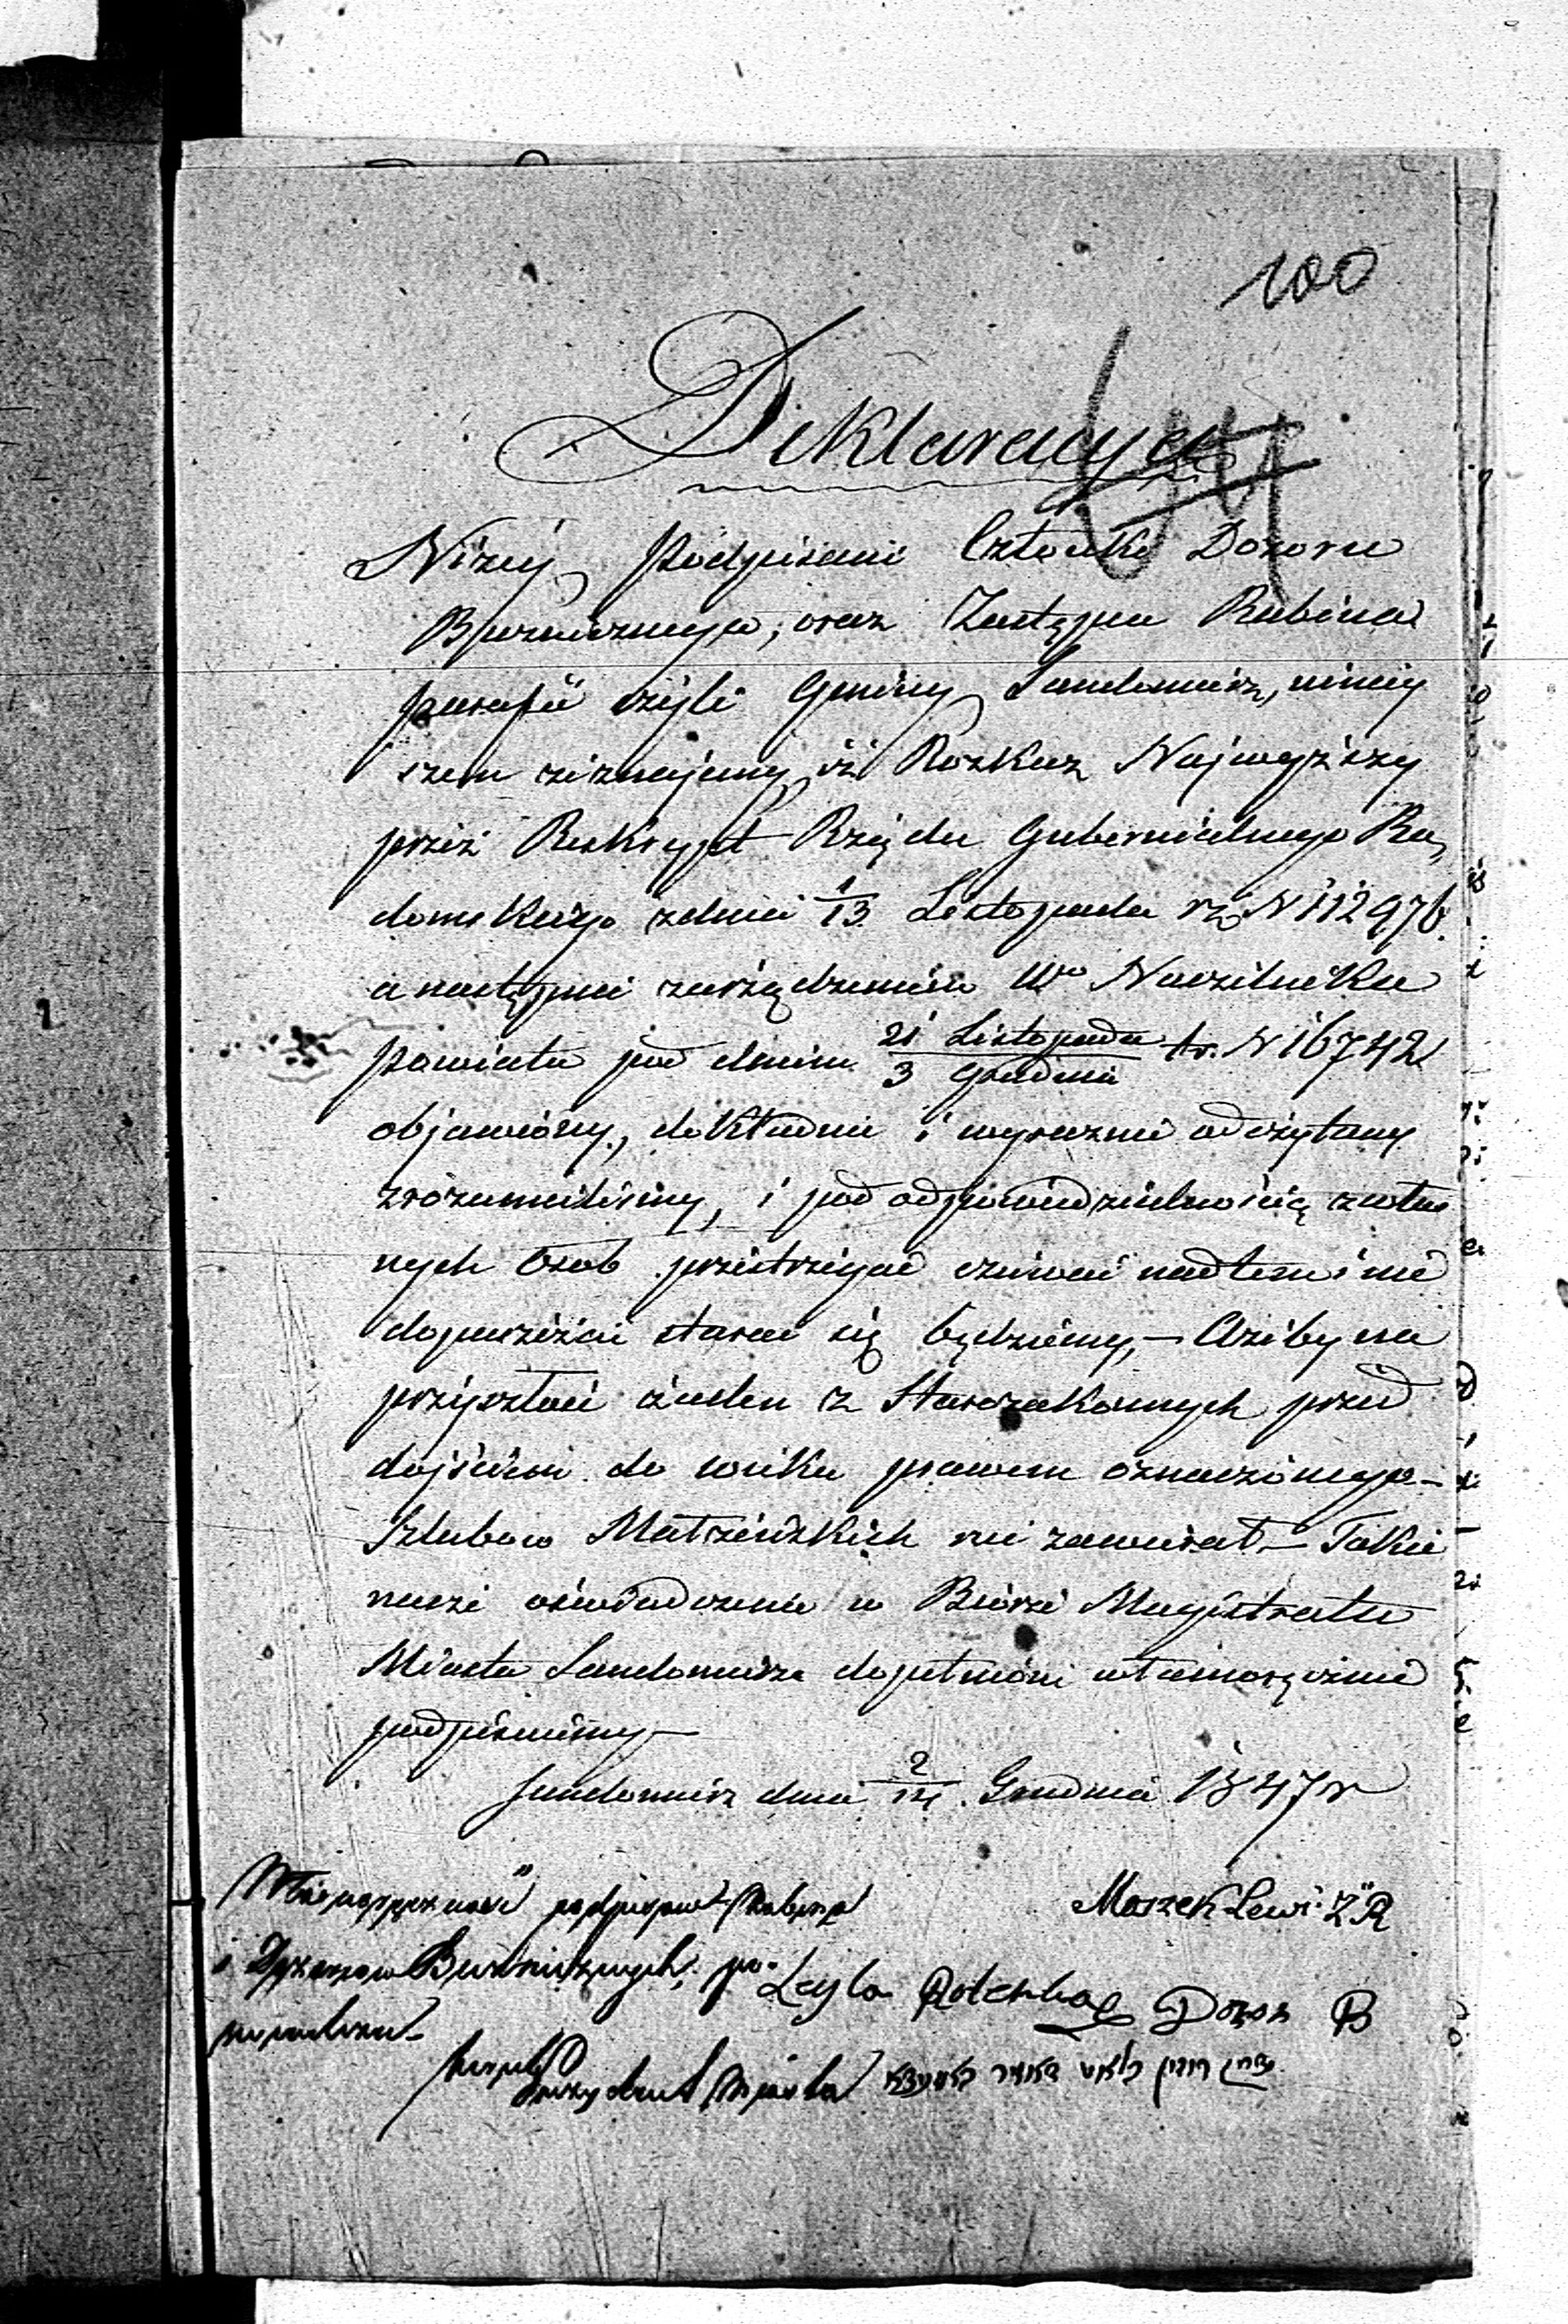 100
44
Deklaracya
Niżéy Podpisani Członki Dozoru
Bożnicznego, oraz Zastępca Rabina
parafii czyli Gminy Sandomierz, niniey
szem zeznajemy iż Rozkaz Najwyższy
przez Reskrypt Rządu Gubernialnego Ra,
domskiego z dnia 1/13 Listopada rb N 112976.
a następnie zarządzeniem Wo Naczelnika
Powiatu pod dniem 21 Listopada / 3 Grudnia tr. N 16742
objawióny, dokładnie i wyraznie odczytany
zrozumieliśmy, i pod odpowiedzialnością włas
nych osob przestrzegać czuwać nadtem i nie
dopuszczać starać się będziemy, — Ażeby na
przyszłość żaden z Starozakonnych przed
dojściem do wieku prawem oznaczónego —
Szlubow Małżeńskich nie zawierał — Takie
nasze oświadczenie w Biórze Magistratu
Miasta Sandomierza dopełnióne własnoręcznie
podpisuiemy —
Sandomierz dnia 2/14 Grudnia 1847 r
Własnoręczność podpisow Rabina
Moszek Lewi Z R
i Dozorow Bożnicznych, po
Leyla Rotenberg Dozor B
Prezydent Miasta